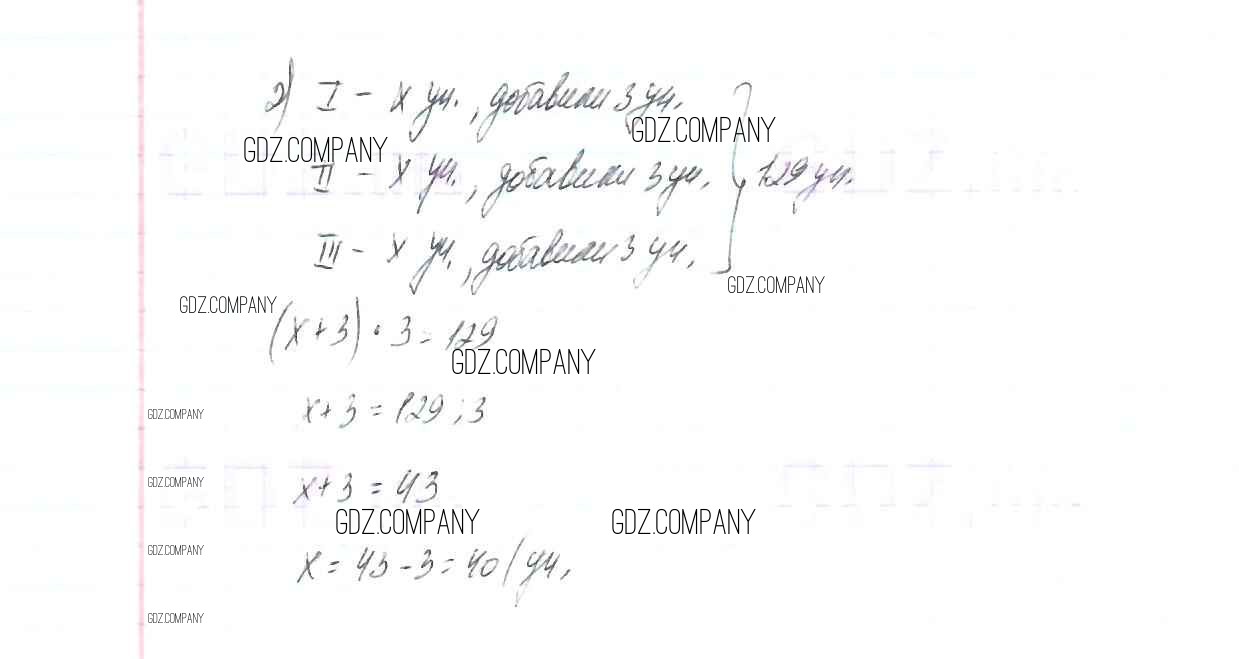 2) I - x уч., добавили 3 уч.
GDZ.COMPANY
GDZ.COMPANY
II - x уч., добавили 3 уч. } 129 уч.
III - x уч., добавили 3 уч.
GDZ.COMPANY
GDZ.COMPANY
(x+3) · 3 = 129
GDZ.COMPANY
x+3 = 129 : 3
GDZ.COMPANY
x+3 = 43
GDZ.COMPANY
GDZ.COMPANY
GDZ.COMPANY
x = 43 - 3 = 40 (уч.
GDZ.COMPANY
GDZ.COMPANY